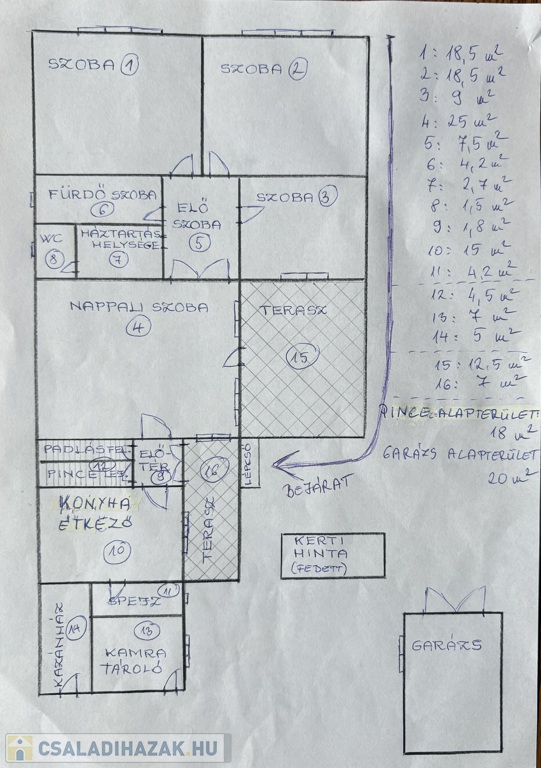 SZOBA 1
SZOBA 2
FÜRDŐ SZOBA
6
ELŐ
SZOBA
5
SZOBA 3
WC
8
HÁZTARTÁS
HELYSÉGE
7
NAPPALI SZOBA
4
TERASZ
15
PADLÁSFEL
12
PINCE
ELŐ-
TÉR
9
16
TERASZ
LÉPCSŐ
BEJÁRAT
KONYHA
ÉTKEZŐ
10
KERTI
HINTA
(FEDETT)
SPEJZ
11
KAZÁNHÁZ
14
13
KAMRA
TÁROLÓ
GARÁZS
1: 18,5 m²
2: 18,5 m²
3: 9 m²
4: 25 m²
5: 7,5 m²
6: 4,2 m²
7: 2,7 m²
8: 1,5 m²
9: 1,8 m²
10: 15 m²
11: 4,2 m²
12: 4,5 m²
13: 7 m²
14: 5 m²
15: 12,5 m²
16: 7 m²
PINCE ALAPTERÜLET:
18 m²
GARÁZS ALAPTERÜLET
20 m²
CSALADIHAZAK.HU